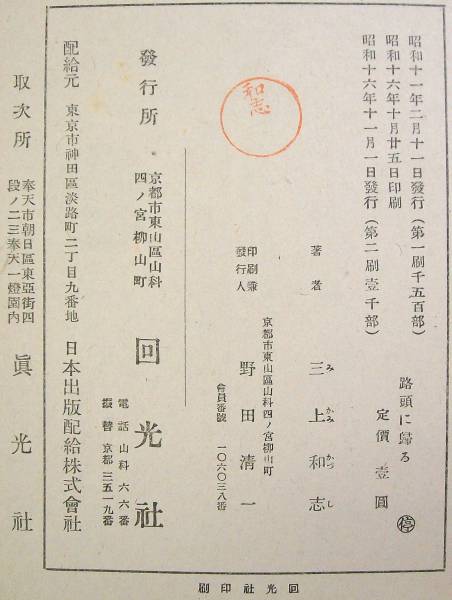 昭和十一年二月十一日發行（第一刷千五百部）
昭和十六年十月廿五日印刷
昭和十六年十一月一日發行（第二刷壹千部）
路頭に歸る
定價壹圓
停
著者 三上和志
み かみ かつ し
印刷兼發行人
京都市東山區山科四ノ宮柳山町
野田清一
會員番號 一〇六〇三八番
和志
發行所
京都市東山區山科
四ノ宮柳山町
回光社
電話 山科 六六番
振替 京都 三五一九番
配給元 東京市神田區淡路町二丁目九番地 日本出版配給株式會社
取次所
奉天市朝日區東亞街四
段ノ二三奉天一燈園內
眞光社
回光社印刷